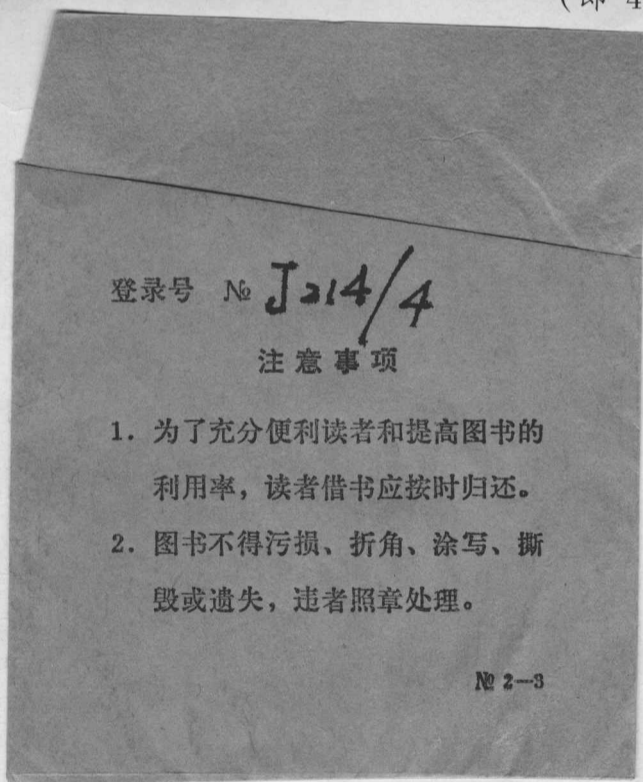 （即 4
登录号 № J214/4
注意事项
1. 为了充分便利读者和提高图书的
利用率，读者借书应按时归还。
2. 图书不得污损、折角、涂写、撕
毁或遗失，违者照章处理。
№ 2—3